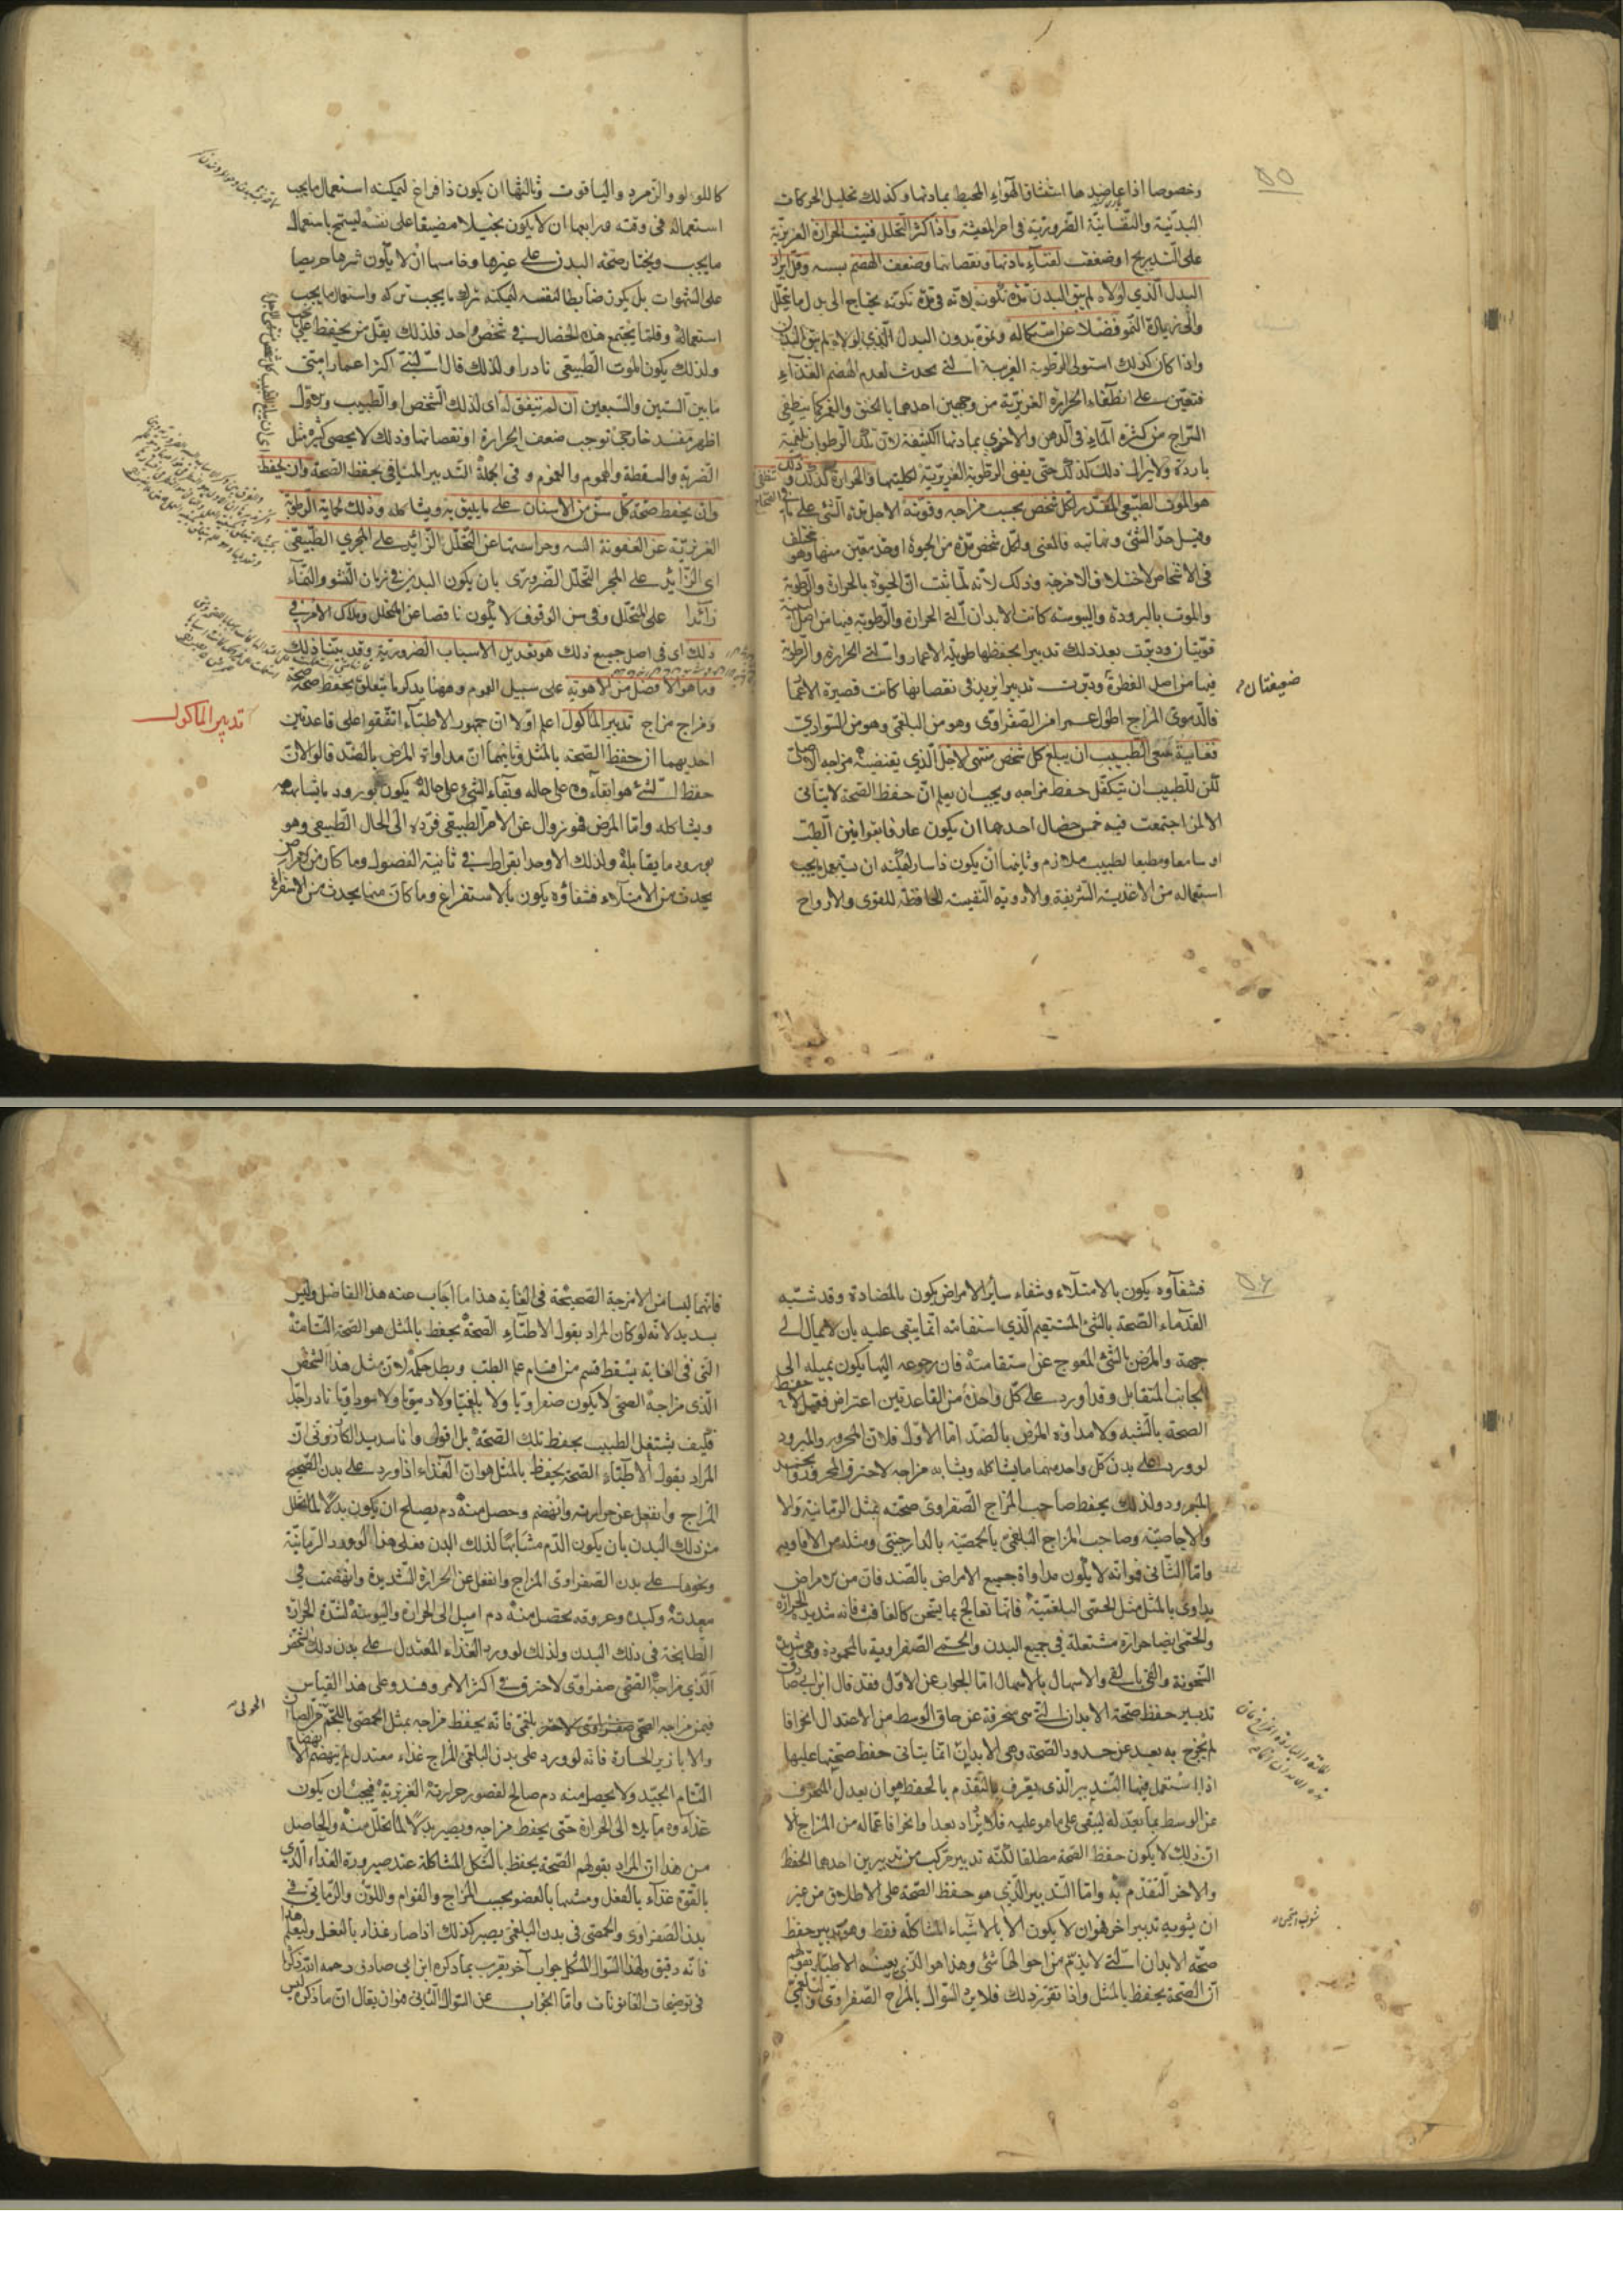 ٥٥
وخصوصا اذا عاضدها استنشاق الهواء المحيط بمادتها وكذلك تحليل الحركات
البدنيّة والنّفسانيّة الضّروريّة فى امر المعيشة واذا كثر التحلل فنيت الحرارة الغريزيّة
على التّدريج او ضعفت لفناء مادتها ونقصانها وضعف الهضم بسببه وقلّ ايراد
البدل الّذى لولاه لم يبق البدن مدّة تكونه لانّه فى مدّة تكوّنه يحتاج الى بدل ما يتحلّل
والى زيادة النّمو فضلا عن استكماله ونموّه بدون البدل الّذى لولاه لم يبق البدن
واذا كان كذلك استولى الرطوبة الغريبة الّتى تحدث لعدم الهضم الغذاء
فتعيّن على انطفاء الحرارة الغريزيّة من وجهين احدهما بالخنق والغمر كما ينطفى
السّراج من كثرة الماء فى الدهن والاخرى بمادتها الكثيفة لانّ تلك الرطوبات بلغمية
باردة ولا يزال ذلك كذلك حتّى يفنى الرطوبة الغريزيّة لكليتها والحرارة كذلك وذلك
هو الموت الطّبيعى المقدّر لكل شخص بحسب مزاجه وقوّته الاجل مدة الشئ على
وقيل حدّ الشئ ونهايته فالمعنى ولكل شخص مدّة من الحيوة او حدّ معيّن منها وهو مختلف
فى الاشخاص لاختلاف الامزجة وذلك لانّه لمّا ثبت انّ الحيوة بالحرارة والرّطوبة
والموت بالبرودة واليبوسة كانت الابدان الّتى الحرارة والرّطوبة فيها من اصل
قويّتان ودبّرت بعد ذلك تدبيرا يحفظها طويلة الاعمار والّتى الحرارة والرّطوبة
فيها من اصل الفطرة ودبّرت تدبيرا يزيد فى نقصانها كانت قصيرة الاعمار
ضعيفتان
فالدّموىّ المزاج اطول عمرا من الصّفراوىّ وهو من البلغمى وهو من السّوداوىّ
فغاية سعى الطّبيب ان يبلغ كل شخص منتهى الاجل الّذى يقتضيه مزاجه الاصلىّ
لكن للطّبيب ان يتكفّل حفظ مزاجه ويجب ان يعلم انّ حفظ الصّحة لا يتأتّى
الا لمن اجتمعت فيه خمس خصال احدهما ان يكون عارفا بقوانين الطّب
او سامعا ومطيعا لطبيب ملازم وثانيها ان يكون ذا يسار ليمكنه ان يستعمل ما يجب
استعماله من الاغذية الشّريفة والادوية النّفيسة الحافظة للقوى والارواح
كاللؤلؤ والزمرد والياقوت وثالثها ان يكون ذا فراغ ليمكنه استعمال ما يجب
استعماله فى وقته ورابعها ان لا يكون بخيلا مضيقا على نفسه ليسمح باستعمال
ما يجب ويختار صحّة البدن على غيرها وخامسها ان لا يكون شرها حريصا
على الشهوات بل يكون ضابطا لنفسه ليمكنه ترك ما يجب تركه واستعمال ما يجب
استعماله وقلّما يجتمع هذه الخصال فى شخص واحد فلذلك يقلّ من يحفظ
ولذلك يكون الموت الطّبيعى نادرا ولذلك قال النّبىّ اكثر اعمار امتى
ما بين الستين والسّبعين ان لم يتفق له اى لذلك الشخص او الطّبيب
اظهر مفسد خارجى توجب ضعف الحرارة او نقصانها وذلك لا يحصى كثرة مثل
الضربة والسقطة والهموم والغموم وفى الجملة التّدبير المنافى بحفظ الصّحة وان يحفظ
وان يحفظ صحّة كلّ سنّ من الاسنان على ما يليق به ويشاكله وذلك لحماية الرطوبة
الغريزيّة عن العفونة السه وحراستها عن التّحلّل الزّائد على المجرى الطّبيعى
اى الزّائد على المجر التّحلّل الضرورى بان يكون البدن فى زمان النّشو والنّماء
زائدا على المتحلّل وفى سن الوقوف لا يكون ناقصا عن المتحلل وملاك الامر فى
ذلك اى فى اصل جميع ذلك هو تعديل الاسباب الضروريّة وقد بيّنّا ذلك
وما هو الافضل من الاهوية على سبيل العموم وههنا يذكر ما يتعلّق بحفظ صحّة
تدبير الماكول
ومزاج مزاج تدبير الماكول اعلم اوّلا ان جمهور الاطبّاء اتّفقوا على قاعدتين
احديهما ان حفظ الصّحة بالمثل وثانيهما انّ مداواة المرض بالضّد قالوا لانّ
حفظ الشّئ هو ابقاؤه على حاله وبقاء الشئ على حاله يكون بورود ما يشابهه
ويشاكله وامّا المرض فهو زوال عن الامر الطّبيعى فردّه الى الحال الطّبيعى وهو
بورود ما يقابله ولذلك الاوحد ابقراط فى ثانية الفصول وما كان من الامراض
يحدث من الامتلاء فشفاؤه يكون بالاستفراغ وما كان منها يحدث من الاستفراغ
٥٦
فشفاؤه يكون بالامتلاء وشفاء سائر الامراض يكون بالمضادة وقد شبّه
القدماء الصّحة بالشئ المستقيم الّذى استقامته انّما يبقى عليه بان لا يمال الى
جهة والمرض بالشئ المعوج عن استقامته فان رجوعه اليها يكون بميله الى
الجانب المتقابل وقد اورد على كلّ واحدة من القاعدتين اعتراض فقيل لا حفظ
الصّحة بالشّبه ولا مداواة المرض بالضّد امّا الاوّل فلانّ المحرور والمبرود
لو ورد على بدن كلّ واحد منهما ما يشاكله ويشابه مزاجه لاحترق المحرور وجمد
المبرود ولذلك يحفظ صاحب المزاج الصّفراوى صحّته بمثل الرمّانيّة والا
والاجاصيّة وصاحب المزاج البلغمىّ بالحمصيّة بالدارچينى ومثله من الافاويه
وامّا الثّانى فوانّه لا يكون مداواة جميع الامراض بالضّد فانّ من الامراض
يداوى بالمثل مثل الحمّى البلغميّة فانّها تعالج بما يسخن كالغافث فانّه شديد الحرارة
والحمّى ايضا حرارة مشتعلة فى جميع البدن والحمّى الصّفراوية بالمحمودة وهى شديدة
السّخونة والقئ بالقئ والاسهال بالاسهال امّا الجواب عن الاوّل فقد قال ابن ابى صادق
تدبير حفظ صحّة الابدان الّتى هى منحرفة عن حاق الوسط من الاعتدال انحرافا
لم يخرج به بعد عن حدود الصّحة وهى الابدان انّما يتأتى حفظ صحّتها عليها
اذا استعمل فيها التّدبير الّذى يعرف بالتّقدّم بالحفظ هو ان يعدل المنحرف
عن الوسط بما يعدّله ليبقى على ما هو عليه فلا يزداد بعدا وانحرافا عمّا له من المزاج الا
انّ ذلك لا يكون حفظ الصّحة مطلقا لكنّه تدبير مركّب من تدبيرين احدهما الحفظ
والاخر التّقدّم به وامّا التّدبير الّذى هو حفظ الصّحة على الاطلاق من غير
ان يشوبه تدبير اخر فهو ان لا يكون الا بالاشياء المشاكلة فقط وهو تدبير حفظ
صحّة الابدان الّتى لا يذمّ من احوالها شئ وهذا هو الّذى يعنيه الاطبّاء بقولهم
انّ الصّحة يحفظ بالمثل واذا تقرّر ذلك فلا يرد السّؤال بالمزاج الصّفراوىّ والبلغمىّ
فانّهما ليسا من الامزجة الصّحيحة فى الغاية هذا ما اجاب عنه هذا الفاضل وليس
بسديد لانّه لو كان المراد بقول الاطبّاء الصّحة يحفظ بالمثل هو الصّحة التّامّة
الّتى فى الغاية يسقط قسم من اقسام علم الطب وبطل حكمه لانّ مثل هذا الشّخص
الّذى مزاجه الصحى لا يكون صفراويا ولا بلغميّا ولا دمويّا ولا سوداويّا نادر اجلّ
فكيف يشتغل الطّبيب بحفظ تلك الصّحّة بل اقول وانا سديد الكازرونى انّ
المراد بقول الاطبّاء الصّحة يحفظ بالمثل هو انّ الغذاء اذا ورد على بدن الصّحيح
المزاج وانفعل عن حرارته وانهضم وحصل منه دم يصلح ان يكون بدلا لما يتحلل
من ذلك البدن بان يكون الدّم مشابها لذلك البدن فعلى هذا الورود الرّمّانيّة
ونحوها على بدن الصّفراوى المزاج وانفعل عن الحرارة الشّديدة وانهضمت فى
معدته وكبده وعروقه يحصل منه دم اميل الى الحرارة واليبوسة لشدّة الحرارة
الطّابخة فى ذلك البدن ولذلك لو ورد الغذاء المعتدل على بدن ذلك الشّخص
الّذى مزاجه الصّحّى صفراوى لاحترق فى اكثر الامر وفسد وعلى هذا القياس
فيمن مزاجه الصحّى بلغمى فانّه يحفظ مزاجه بمثل الحمّصى باللّحم
والابازير الحارة فانّه لو ورد على بدن البلغمى المزاج غذاء معتدل لم ينهضم الا
التّام الجيّد ولا يحصل منه دم صالح لقصور حرارته الغريزيّة فيجب ان يكون
غذاؤه مائلا الى الحرارة حتّى يحفظ مزاجه ويصير بدلا لما يتحلّل منه والحاصل
من هذا انّ المراد بقولهم الصّحة يحفظ بالشّكل المشاكلة عند صيرورة الغذاء الّذى
بالقوّة غذاء بالفعل ومشبها بالعضو بحسب المزاج والقوام واللّون والرّمّانىّ فى
بدن الصّفراوى والحمصى فى بدن البلغمى يصير كذلك اذا صار غذاء بالفعل وليعلم هذا
فانّه دقيق ولهذا السّؤال المشكل جواب آخر يقرب بما ذكره ابن ابى صادق رحمه الله ذكرنا
فى توضيحات القانونات وامّا الجواب عن السّؤال الثّانى فهو ان يقال انّ ما ذكره ليس